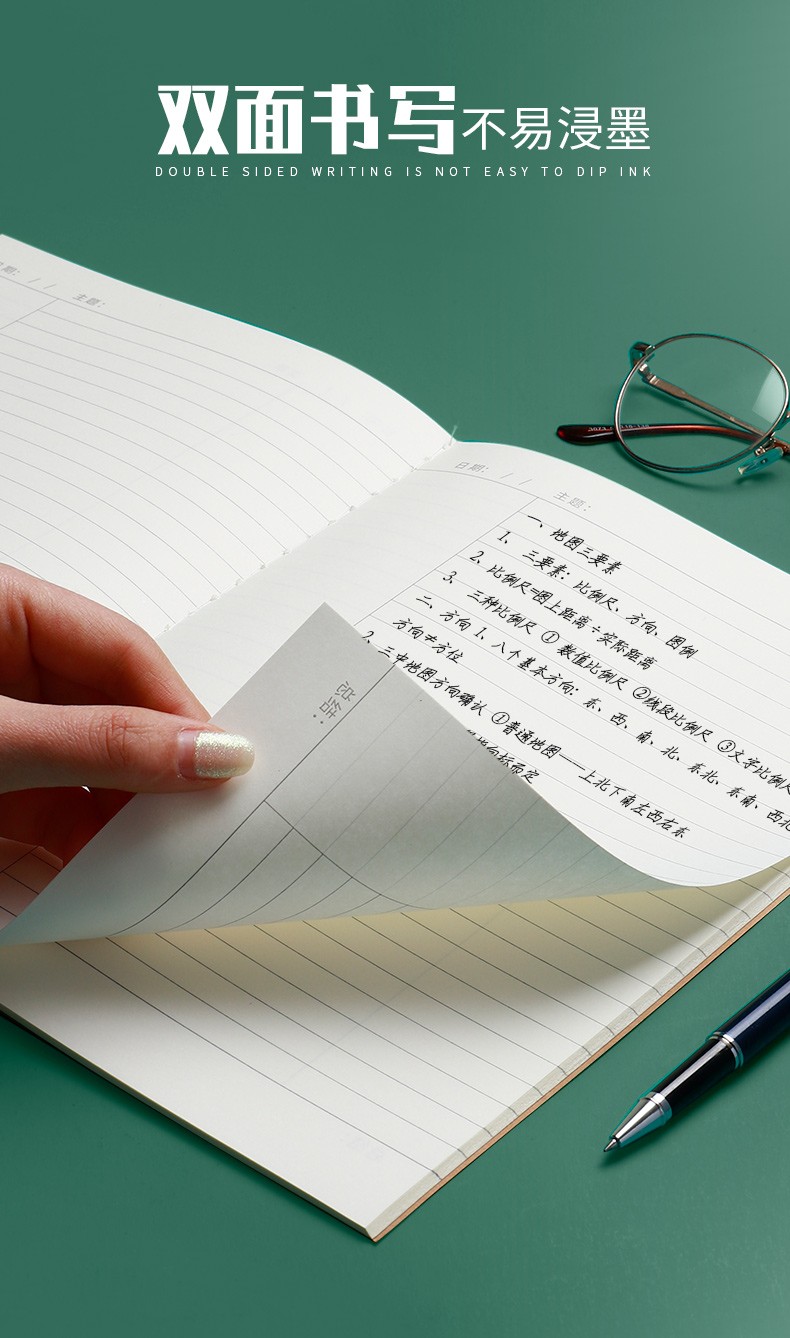 双面书写不易浸墨
DOUBLE SIDED WRITING IS NOT EASY TO DIP INK
期: / / 主题:
日期: / / 主题:
一、地图三要素
1、三要素：比例尺、方向、图例
2、比例尺=图上距离÷实际距离
3、三种比例尺 ① 数值比例尺 ②线段比例尺 ③文字比例尺
二、方向 1、八个基本方向：东、西、南、北、东北、东南、西北
方向≠方位
2、三中地图方向确认 ①普通地图——上北下南左西右东
指向标而定
总结: